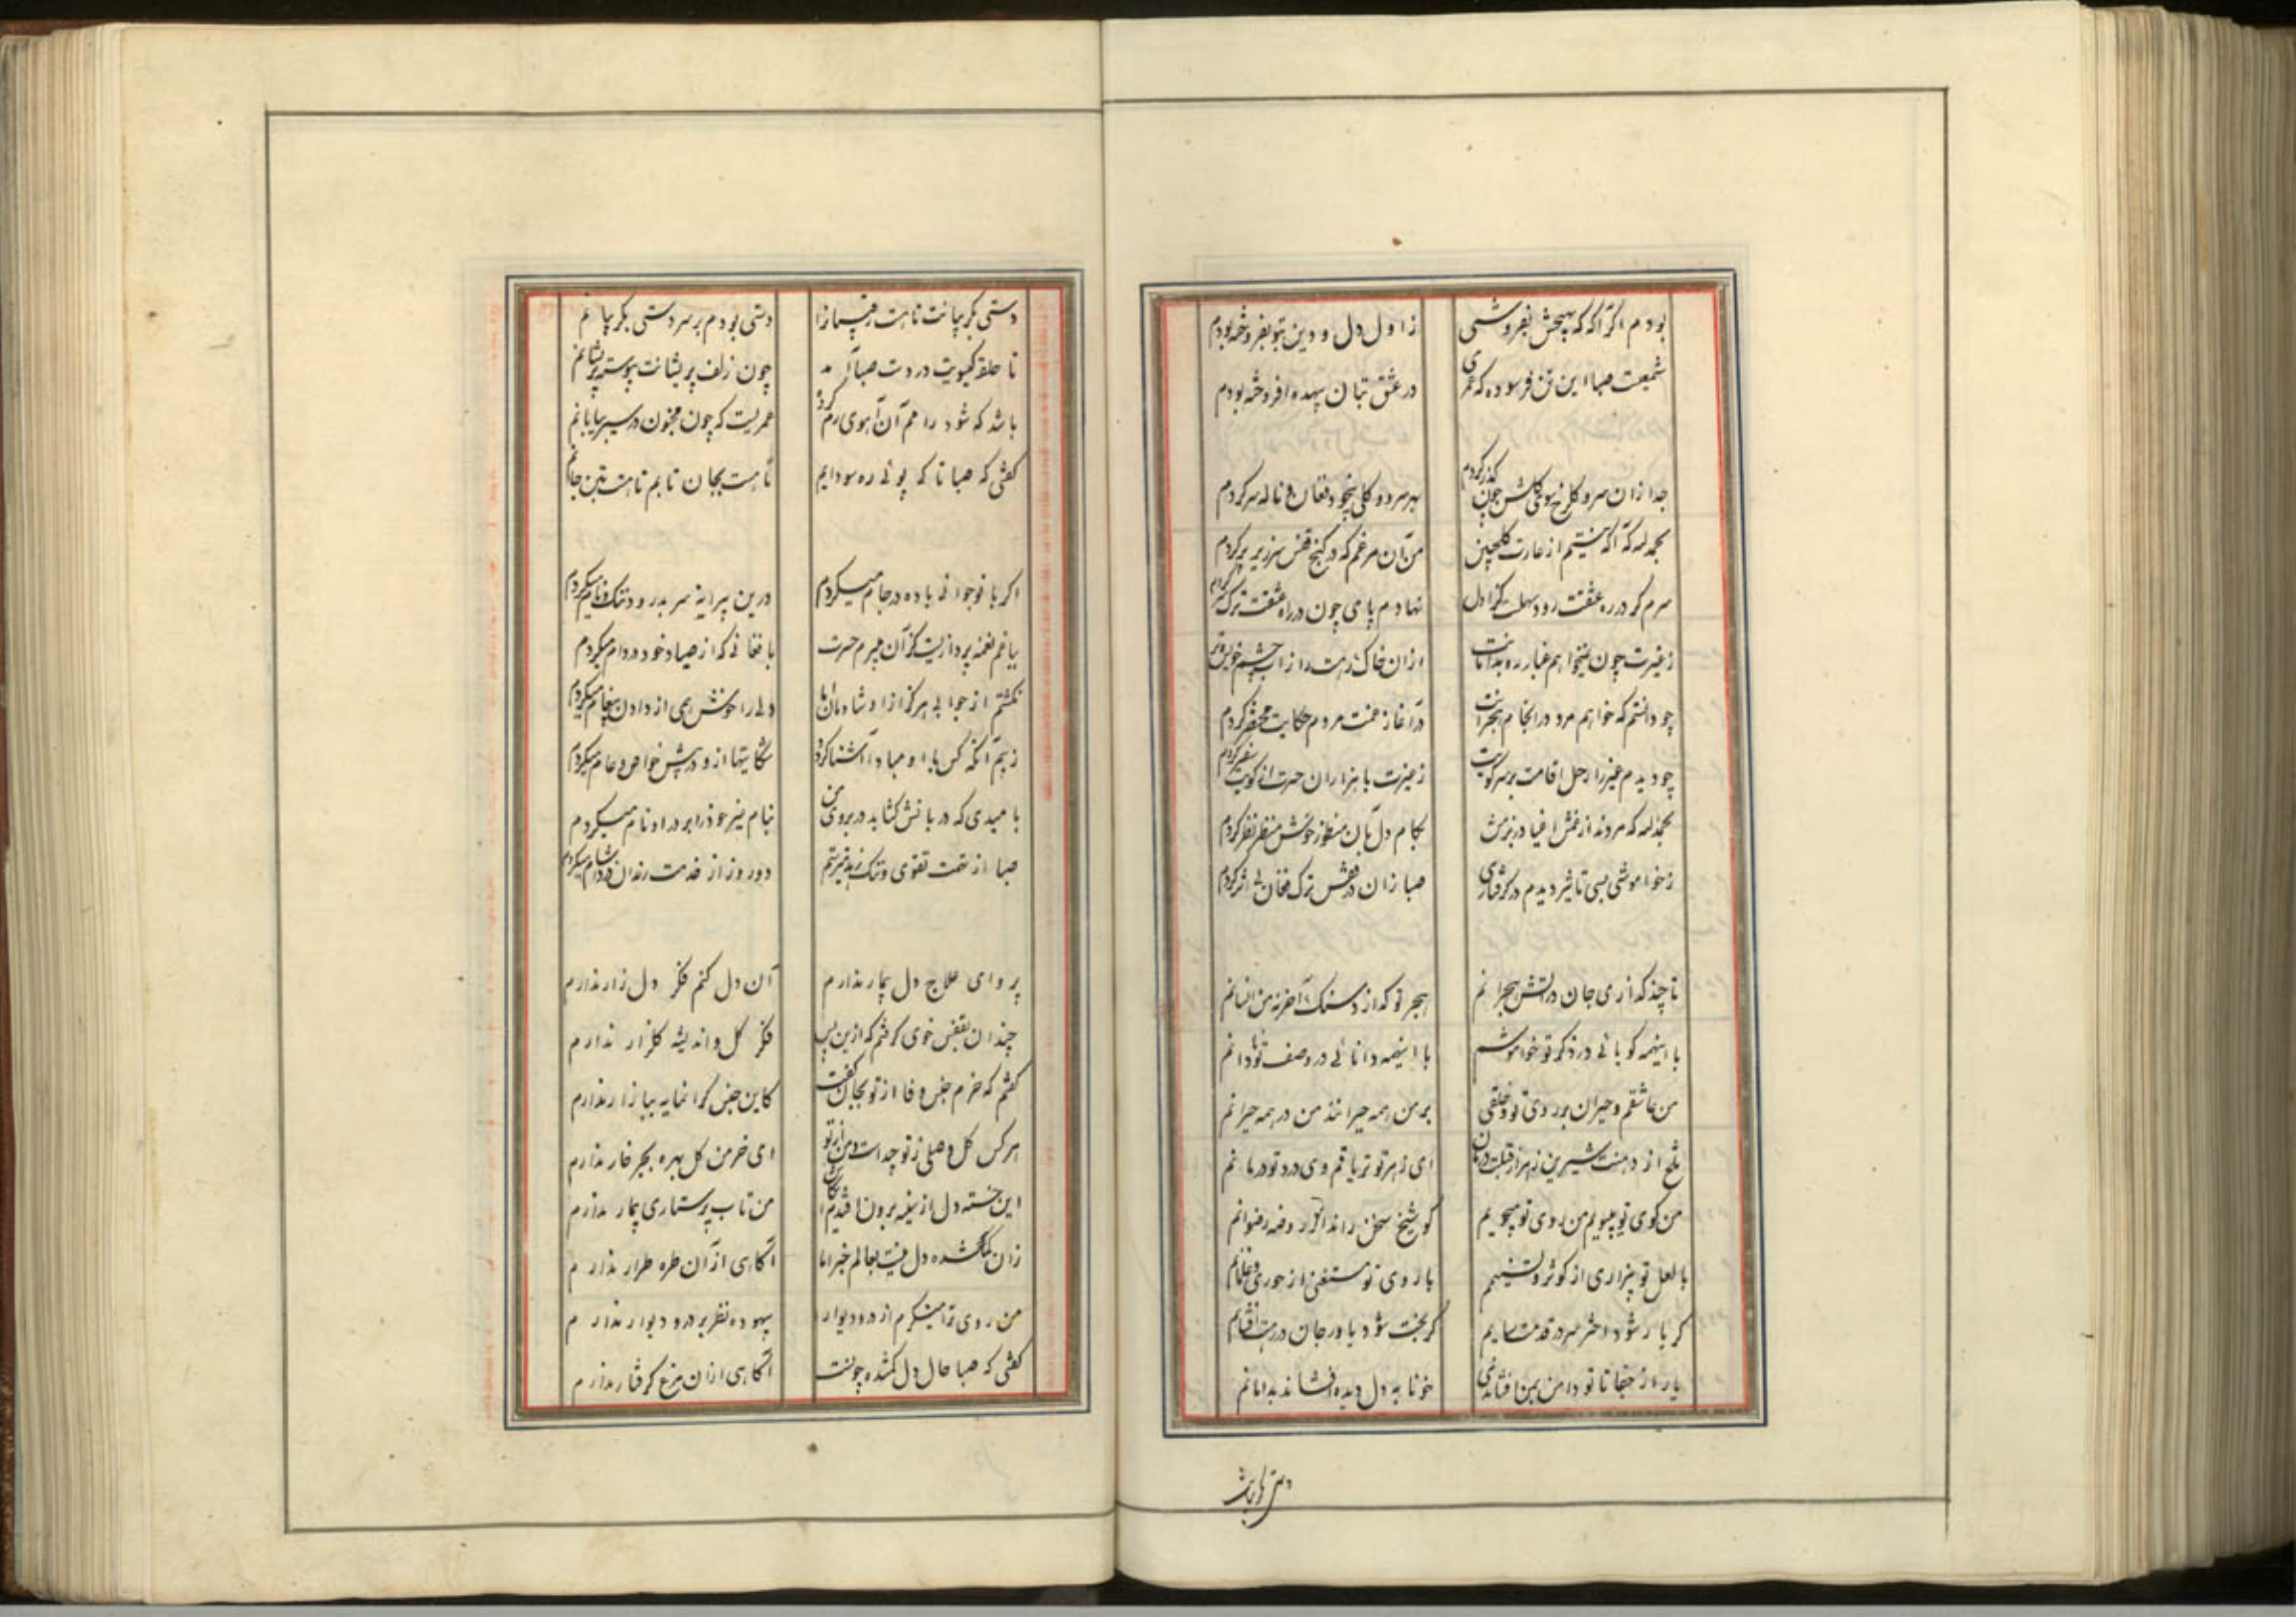 بودم اگر آگه که بهیچش بفروشی
ز اول دل و دین بتو بفروخته بودم
شمعیست صبا این تن فرسوده که عمری
در عشق بتان بیهده افروخته بودم
جدا زان سرو گلرخ سوی گلشن چون گذر کردم
بهر سرو و گلی بیخود فغان و ناله سر کردم
بحمدالله که آگه نیستم از غارت گلچین
من آن مرغم که در کنج قفس سر زیر پر کردم
سرم گر در ره عشقت رود سهلست کز اول
نهادم پای چون در راه عشقت ترک سر کردم
ز غیرت چون نمیخواهم غبار ره بدامانت
از آن خاک رهت را ز آب چشم خویش تر کردم
چو دانستم که خواهم مرد در انجام هجرانت
در آغاز محنت مردم حکایت مختصر کردم
چو دیدم غیر را رحل اقامت بر سر کویت
ز غیرت با هزاران حسرت از کویت سفر کردم
بحمدالله که مردند از غمش اغیار در بزمش
بکام دل بآن منظور خوش منظر نظر کردم
ز خواموشی بسی تاثیر دیدم در گرفتاری
صبا زان در قفس ترک فغان بی اثر کردم
تا چند گدازی جان در آتش هجرانم
هجر تو گداز د سنگ آخر نه من انسانم
با اینهمه گویائی در ذکر تو خواموشم
با اینهمه دانائی در وصف تو نادانم
من عاشقم و حیران بر روی تو و خلقی
بر من همه حیرانند من در همه حیرانم
تلخ از دهنت شیرین زهر از قبلت درمان
ای زهر تو تریاقم وی درد تو درمانم
من کوی تو میپویم من روی تو میجویم
گو شیخ سخن راند از روضه رضوانم
با لعل تو بیزاری از کوثر و تسنیمم
با روی تو مستغنی از حوری و غلمانم
گر یار شود اختر سر در قدمت سایم
گر بخت شود یاور جان در رهت افشانم
یار از جفا تا تو دامن بمن افشاندی
خونابه دل دیده افشاند بدامانم
دستی بگریبانت
دستی بگریبانت تا هست رقیبانرا
دستی بودم بر سر دستی بگریبانم
تا حلقه گیسویت در دست صبا آمد
چون زلف پریشانت پیوسته پریشانم
باشد که شود رامم آن آهوی رم کرده
عمریست که چون مجنون در سیر بیابانم
گفتی که صبا تا که پوئی ره سودایم
تا هست بجان تابم تا هست بتن جانم
اگر با نوجوانی باده در جام میکردم
درین پیرانه سر بدرود ننگ و نام میکردم
بیاغم نغمه پردازیست کز آن میبرم حسرت
با فغانی که از صیاد خود در دام میکردم
نگشتم از جوابی هرگز از او شادمان اما
دلی را خوش همی از دادن پیغام میکردم
ز بیم آنکه کس با او مبادا آشنا گردد
شکایتها از و در پیش خواص و عام میکردم
بامیدی که دربانش گشاید در بروی من
بنام غیر خود را بر در او نام میکردم
صبا از تهمت تقوی و ننگ زهد میرستم
دو روز از خدمت رندان دردآشام میکردم
پروای علاج دل بیمار ندارم
آن دل کنم فکر دل زار ندارم
چندان بقفس خوی گرفتم که ازین پس
فکر گل و اندیشه گلزار ندارم
گفتم که خرم جنس وفا از تو بجان گفت
کاین جنس گرانمایه ببازار ندارم
هر کس گل وصلی ز تو چیداست و من از تو
ای خرمن گل بهره بجز خار ندارم
این خسته دل از سینه برون افتدم ای کاش
من تاب پرستاری بیمار ندارم
زان گمشده دل نیست بعالم خبر اما
آگاهی از آن طره طرار ندارم
من روی ترا مینگرم از در و دیوار
بیهوده نظر بر در و دیوار ندارم
گفتی که صبا حال دل گمشده چونست
آگاهی از آن مرغ گرفتار ندارم